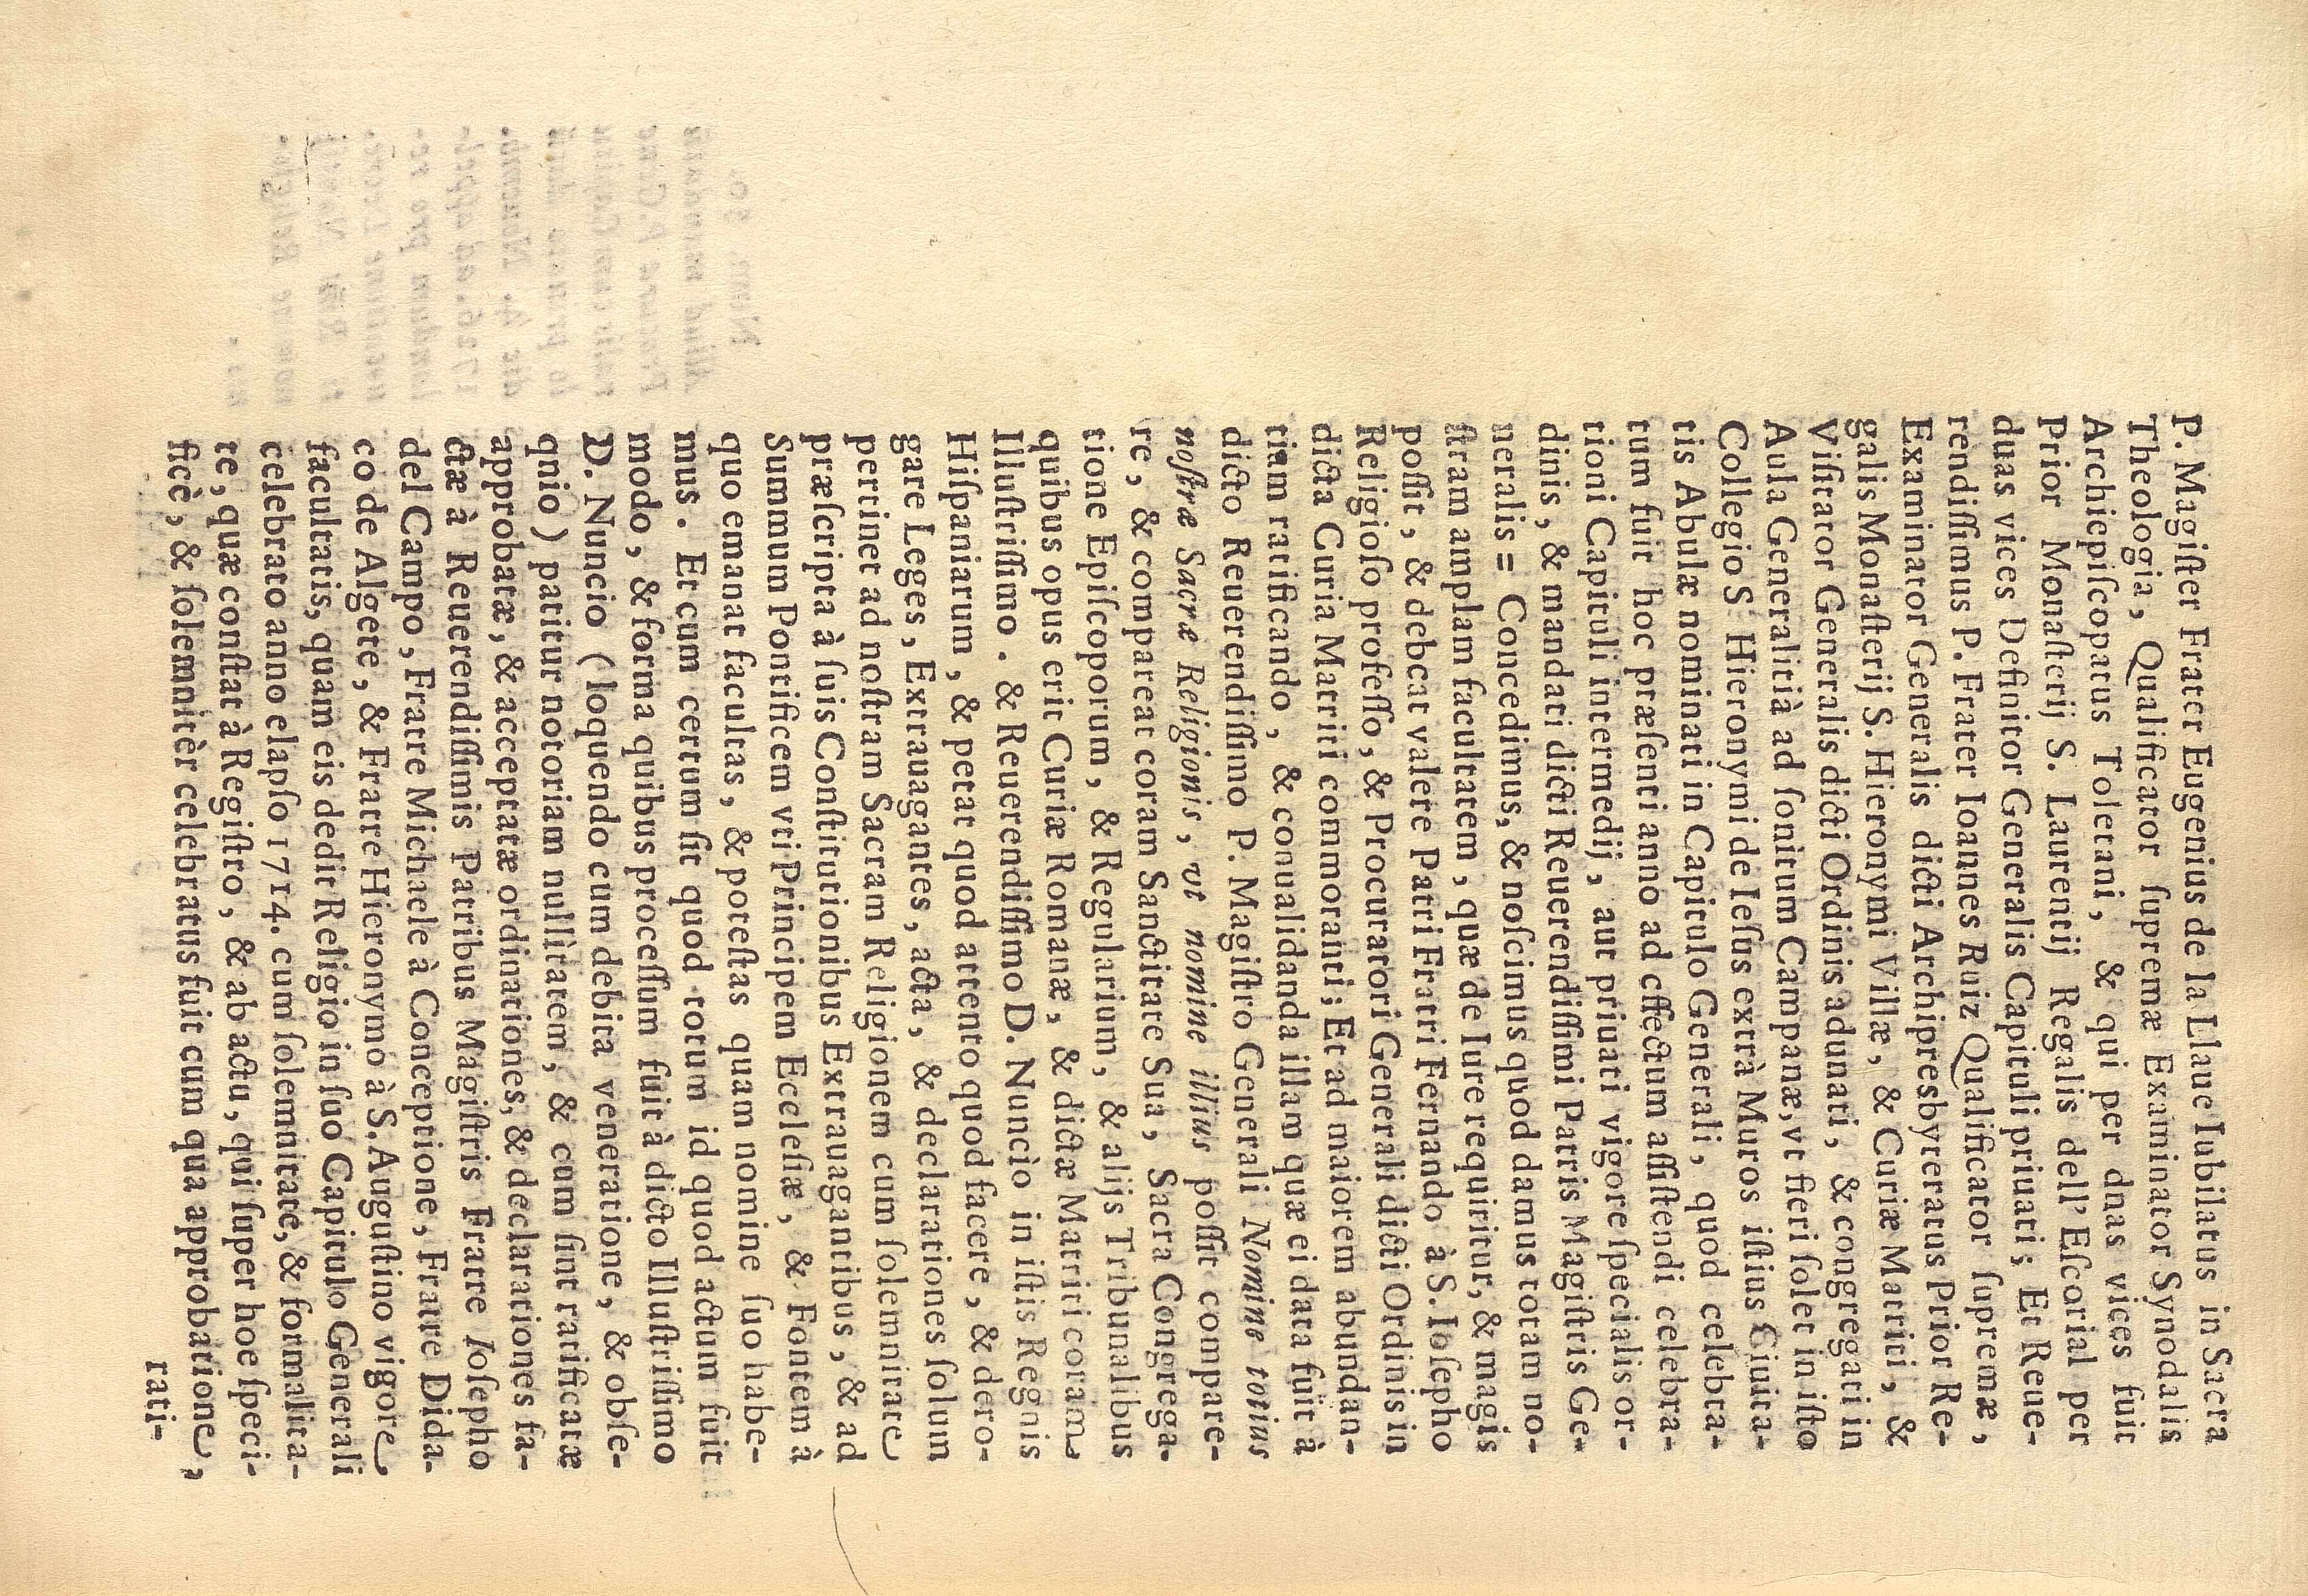 P. Magiſter Frater Eugenius de la Llaue Iubilatus in Sacra
Theologia, Qualificator ſupremæ Examinator Synodalis
Archiepiſcopatus Toletani, & qui per dnas vices fuit
Prior Monaſterij S. Laurentij Regalis dell' Eſcorial per
duas vices Definitor Generalis Capituli priuati; Et Reue-
rendiſſimus P. Frater Ioannes Ruiz Qualificator ſupremæ,
Examinator Generalis dicti Archipresbyteratus Prior Re-
galis Monaſterij S. Hieronymi Villæ, & Curiæ Matriti, &
Viſitator Generalis dicti Ordinis adunati, & congregati in
Aula Generalitià ad ſonitum Campanæ, vt fieri ſolet in iſto
Collegio S Hieronymi de Ieſus extrà Muros iſtius Ciuita-
tis Abulæ nominati in Capitulo Generali, quod celebra-
tum fuit hoc præſenti anno ad effectum aſſiſtendi celebra-
tioni Capituli intermedij, aut priuati vigore ſpecialis or-
dinis, & mandati dicti Reuerendiſſimi Patris Magiſtris Ge-
neralis = Concedimus, & noſcimus quod damus totam no-
ſtram amplam facultatem, quæ de Iure requiritur, & magis
poſſit, & debeat valere Patri Fratri Fernando à S. Ioſepho
Religioſo profeſſo, & Procuratori Generali dicti Ordinis in
dicta Curia Matriti commoranti; Et ad maiorem abundan-
tiam ratificando, & conualidanda illam quæ ei data fuit à
dicto Reuerendiſſimo P. Magiſtro Generali Nomine totius
noſtræ Sacræ Religionis, vt nomine illius poſſit compare-
re, & compareat coram Sanctitate Sua, Sacra Congrega-
tione Epiſcoporum, & Regularium, & alijs Tribunalibus
quibus opus erit Curiæ Romanæ, & dictæ Matriti coram
Illuſtriſſimo. & Reuerendiſſimo D. Nuncio in iſtis Regnis
Hiſpaniarum, & petat quod attento quod facere, & dero-
gare Leges, Extrauagantes, acta, & declarationes ſolum
pertinet ad noſtram Sacram Religionem cum ſolemnitate
præſcripta à ſuis Conſtitutionibus Extrauagantibus, & ad
Summum Pontificem vti Principem Eceleſiæ, & Fontem à
quo emanat facultas, & poteſtas quam nomine ſuo habe-
mus. Et cum certum ſit quod totum id quod actum fuit
modo, & forma quibus proceſſum fuit à dicto Illuſtriſſimo
D. Nuncio (loquendo cum debita veneratione, & obſe-
qnio) patitur notoriam nullitatem, & cum ſint ratificatæ
approbatæ, & acceptatæ ordinationes, & declarationes fa-
ctæ à Reuerendiſſimis Patribus Magiſtris Fratre Ioſepho
del Campo, Fratre Michaele à Conceptione, Fratre Dida-
co de Algete, & Fratre Hieronymo à S. Auguſtino vigore
facultatis, quam eis dedit Religio in ſuo Capitulo Generali
celebrato anno elapſo 1714. cum ſolemnitate, & formalita-
te, quæ conſtat à Regiſtro, & ab actu, qui ſuper hoe ſpeci-
ficè, & ſolemnitèr celebratus fuit cum qua approbatione,
rati-